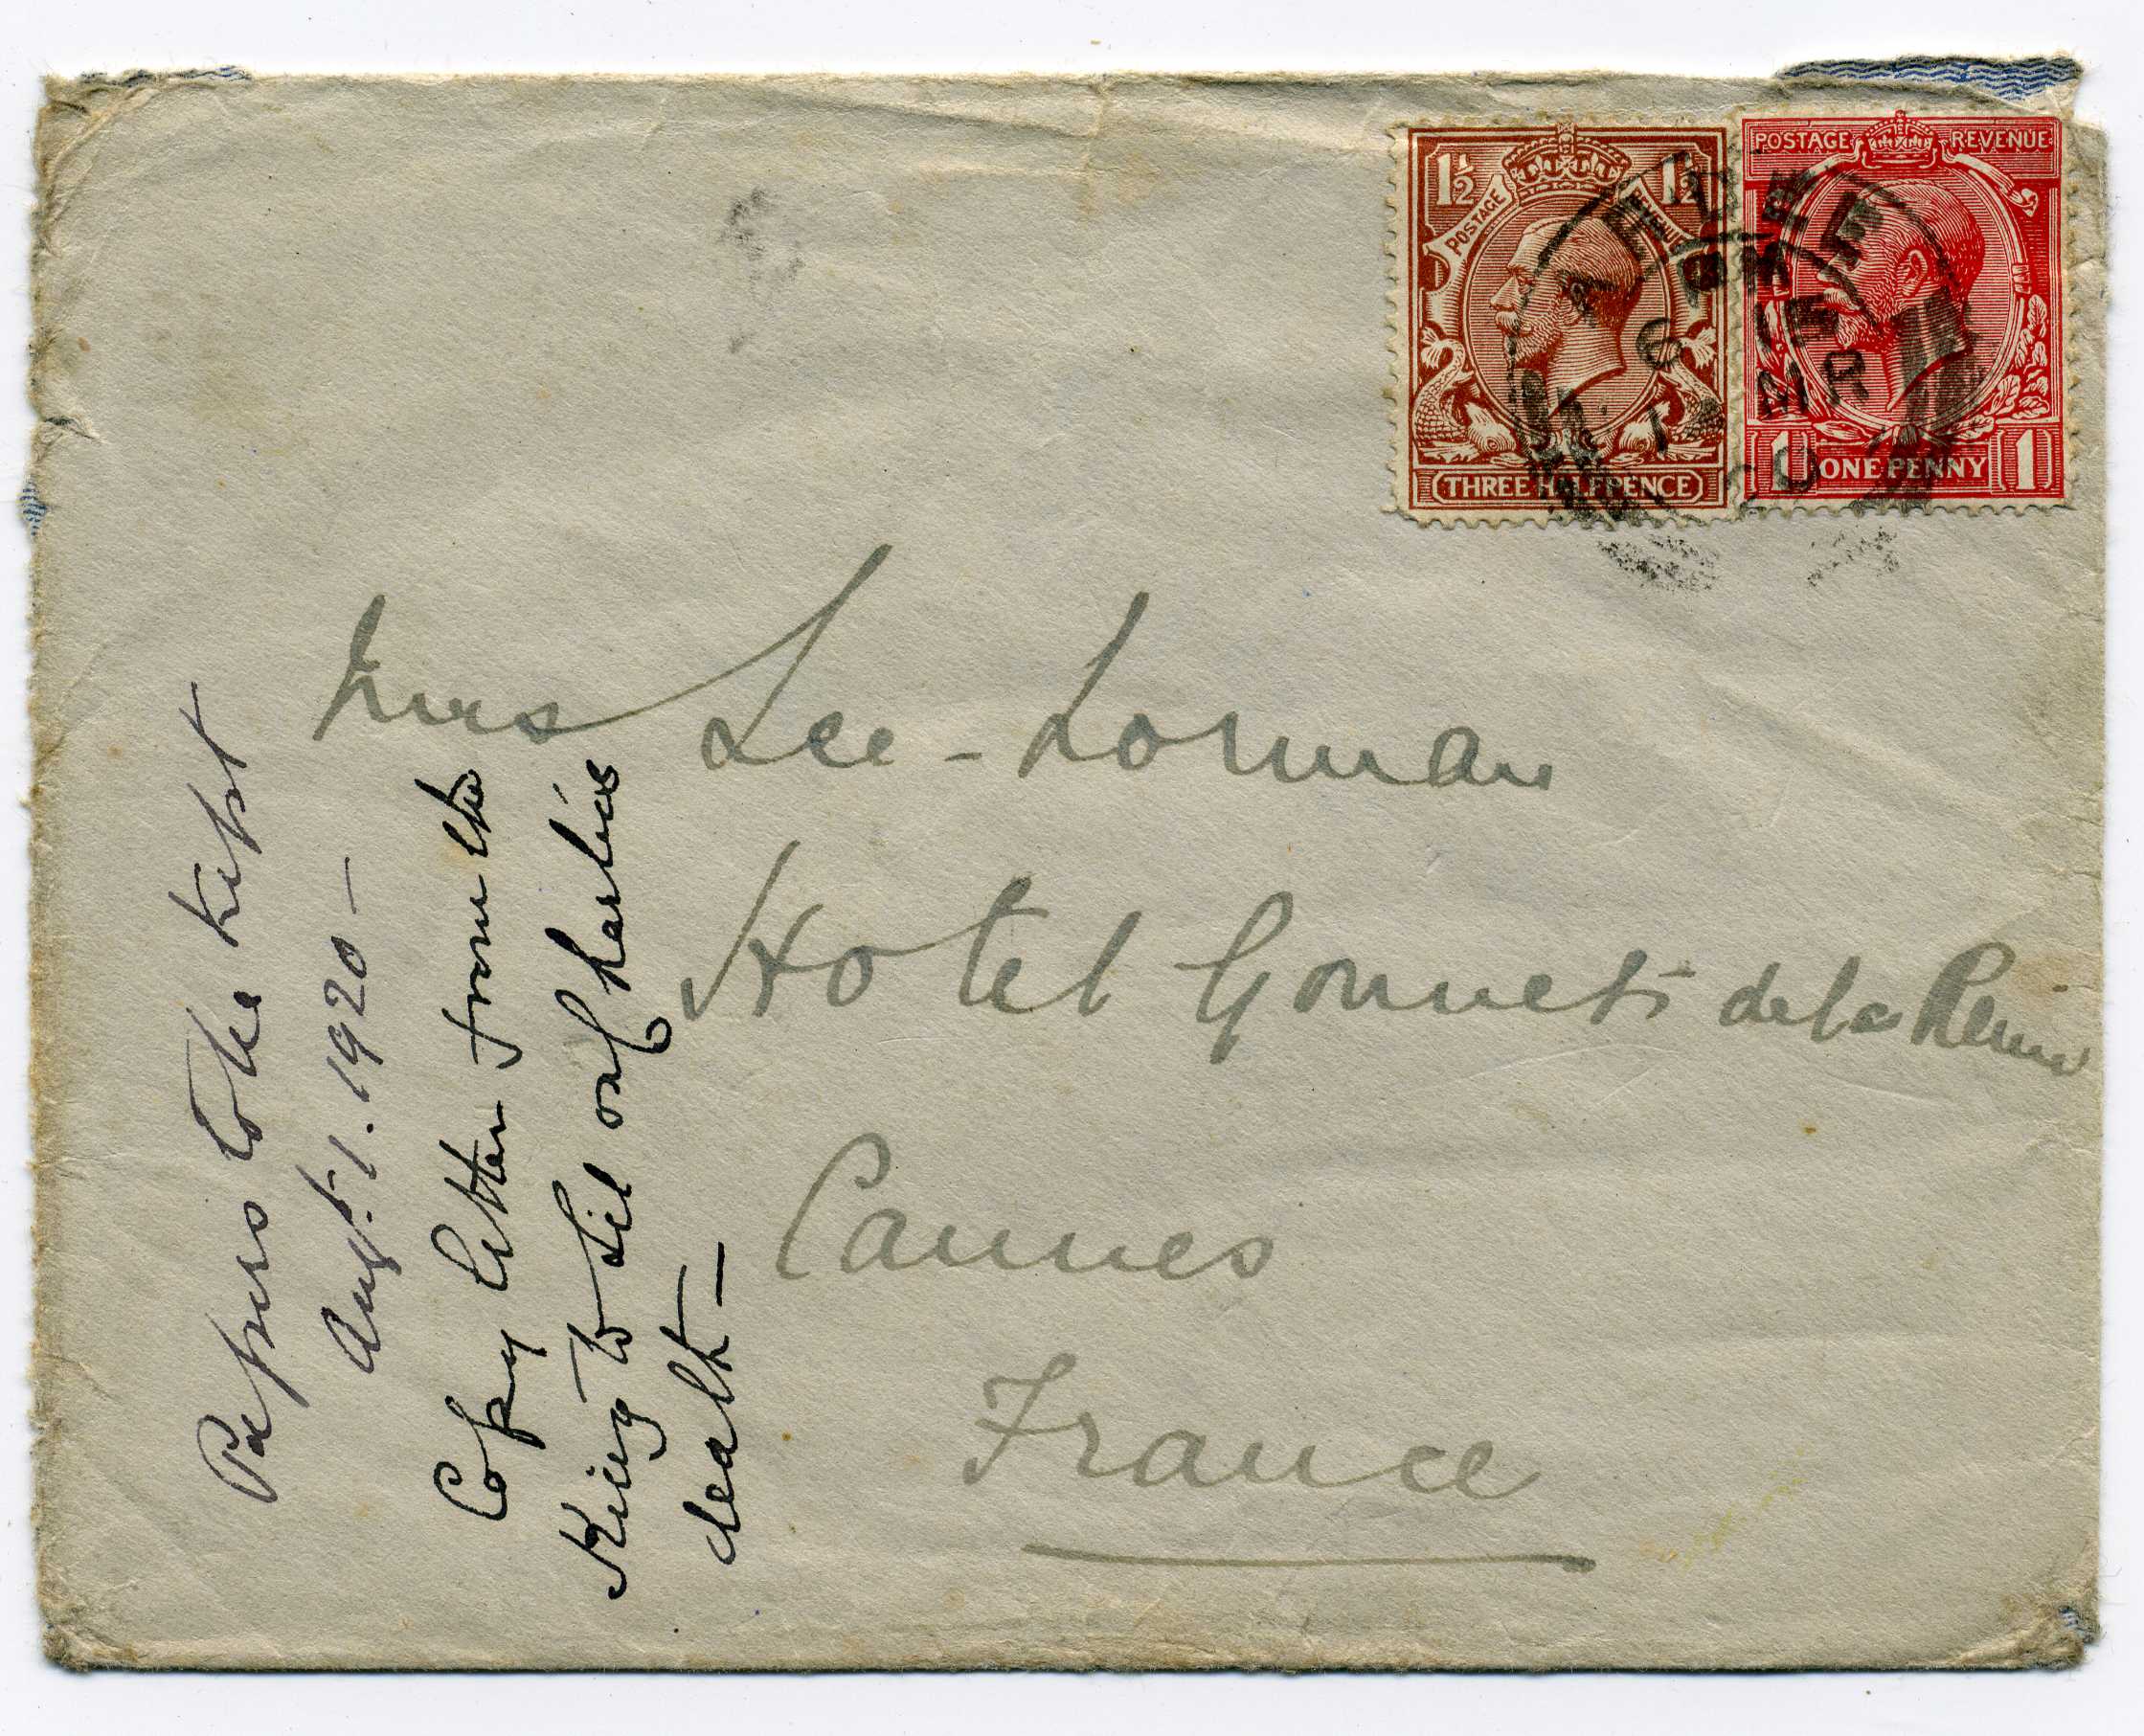 1½ 1½
POSTAGE REVENUE
THREE HALFPENCE
POSTAGE REVENUE
1 ONE PENNY 1
PM
6 15
MR
20
Mrs Lee-Dorman
Hotel Gonnet de la Reine
Cannes
France
Papers to be kept
Augst. 1. 1920 –
Copy letter from the
King to Sil on Charlie's
death –